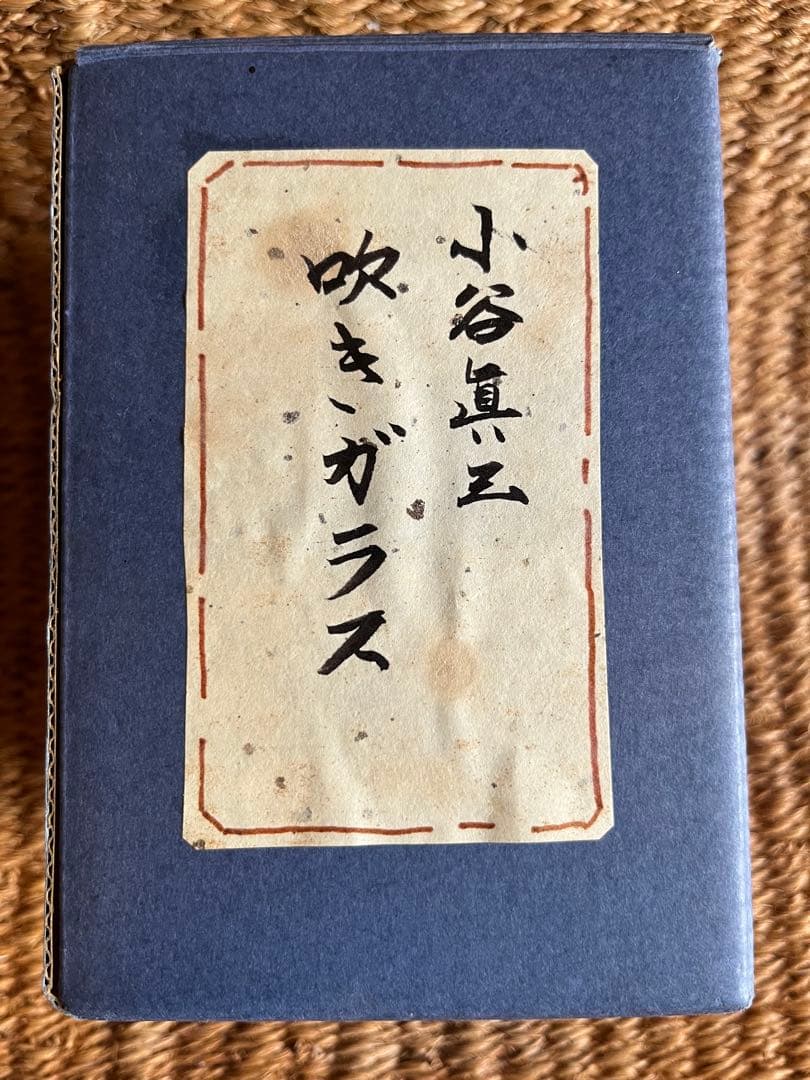 小谷眞三
吹きガラス